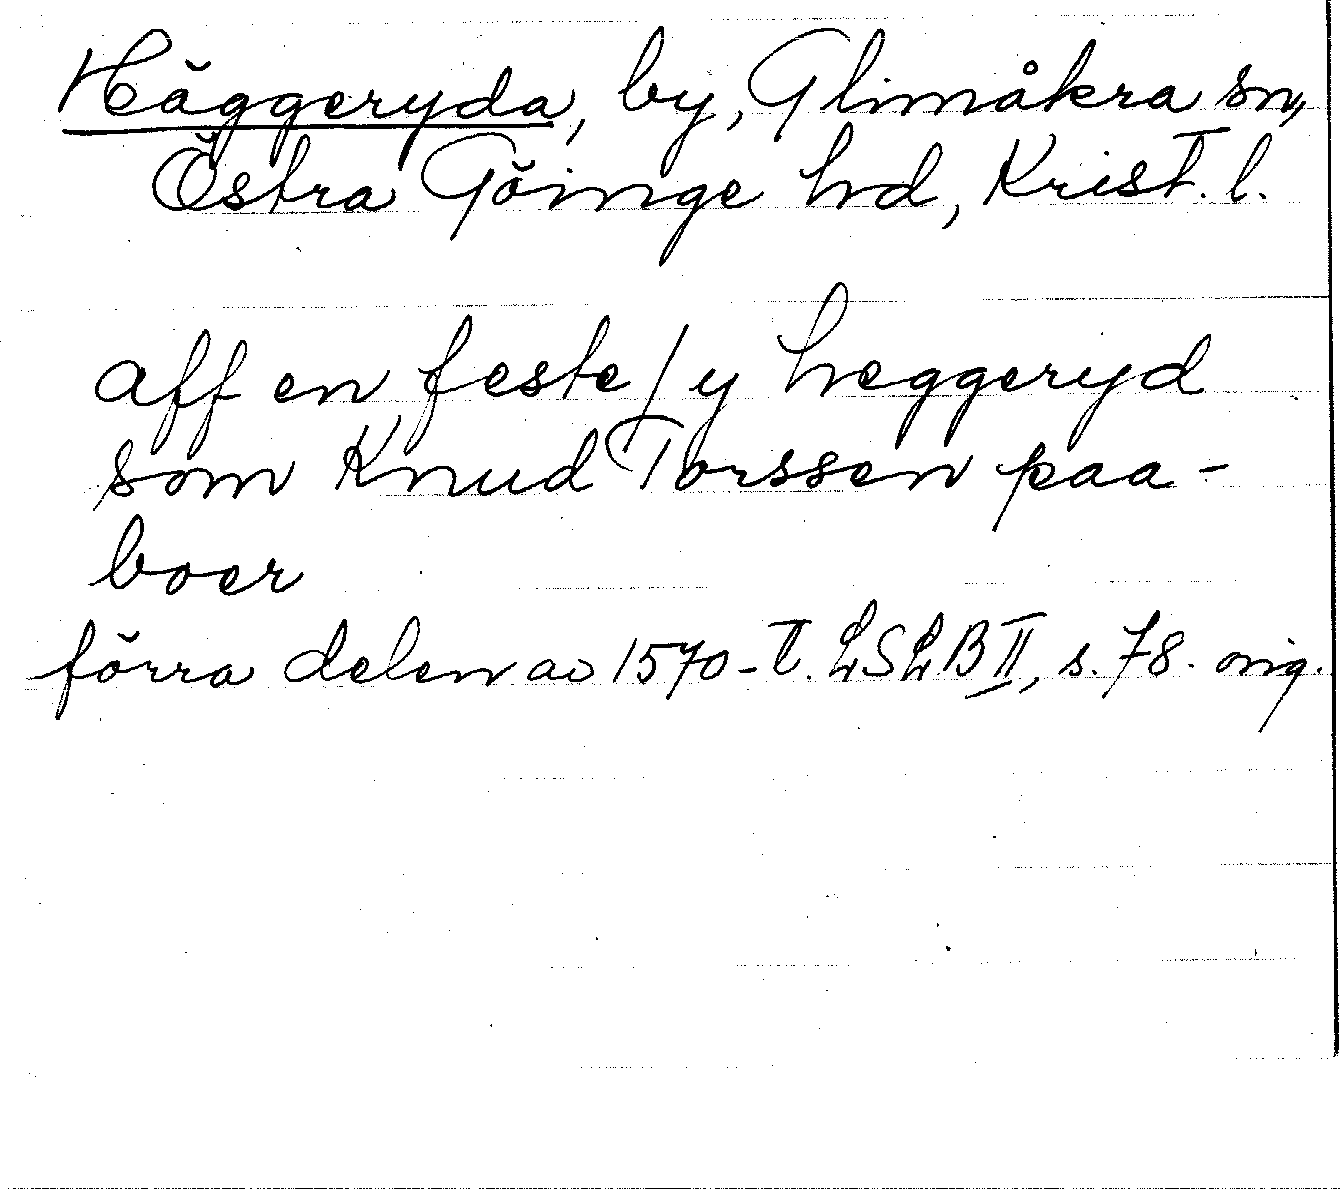 Häggeryda, by, Glimåkra sn,
Östra Göinge hd, Krist. l.
aff en feste / y heggeryd
som Knud Torssen paa-
boer
förra delen av 1570-t. LSLB II, s. 78. orig.